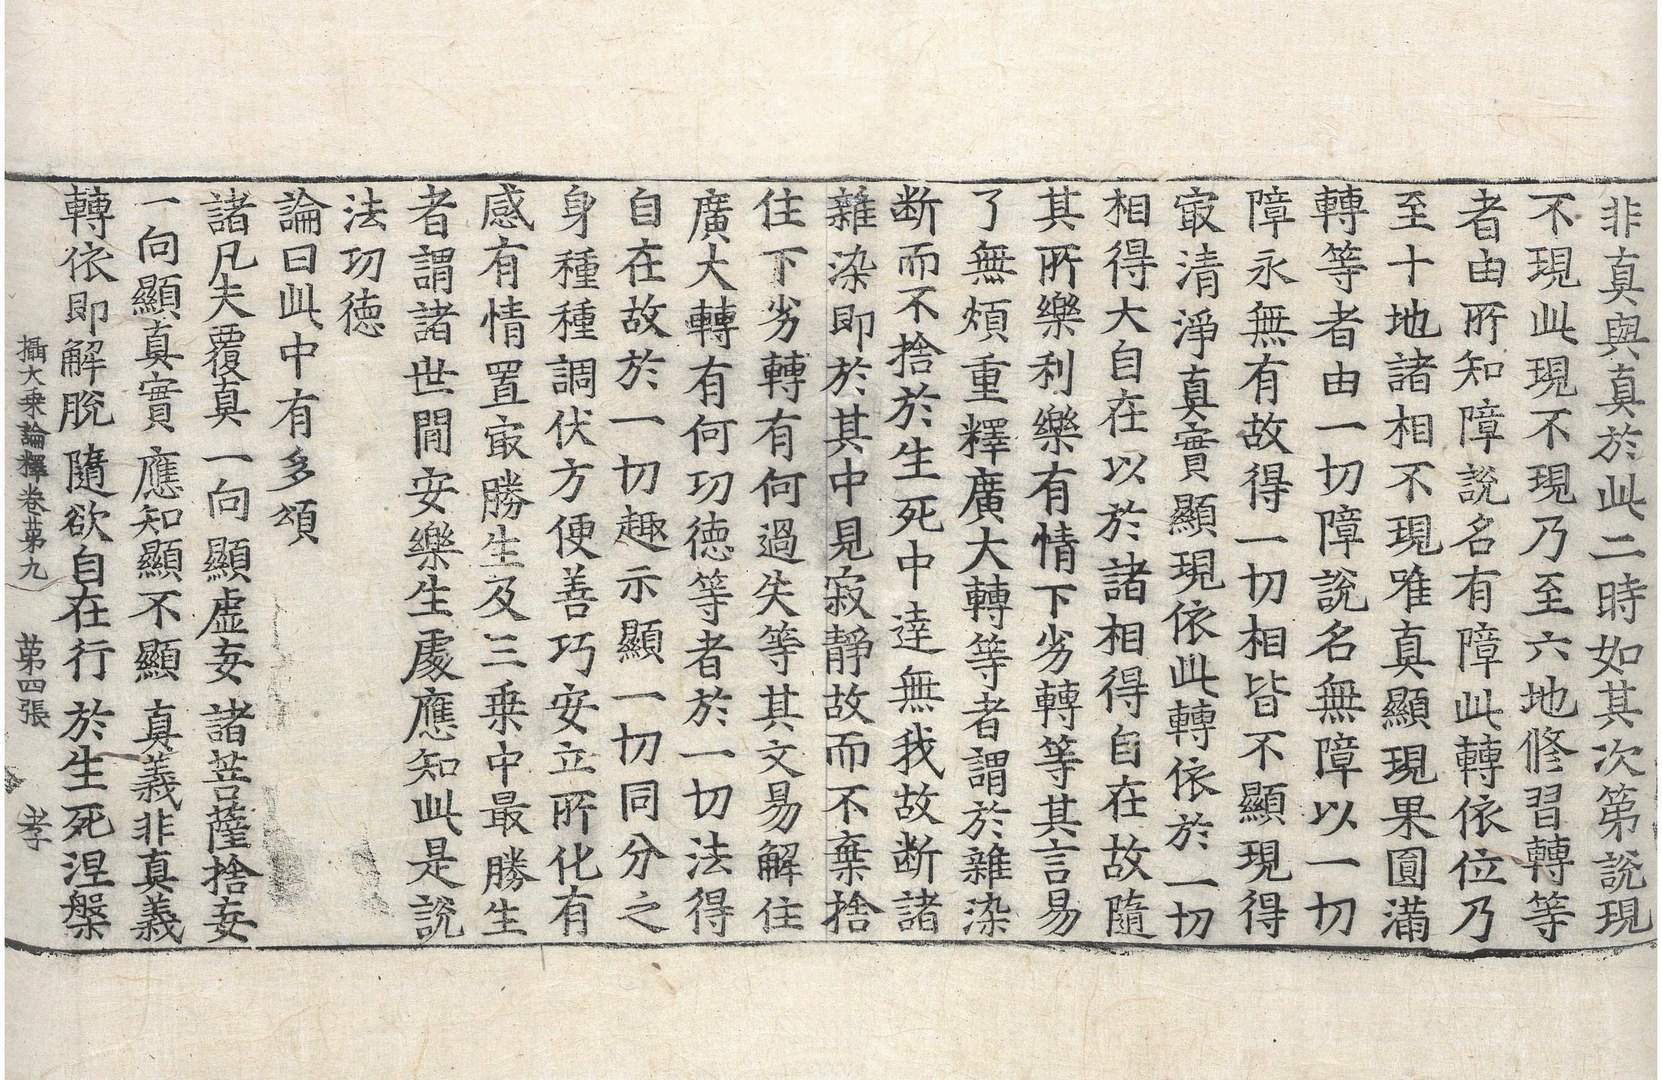 非真與真於此二時如其次第說現
不現此現不現乃至六地修習轉等
者由所知障說名有障此轉依位乃
至十地諸相不現唯真顯現果圓滿
轉等者由一切障說名無障以一切
障永無有故得一切相皆不顯現得
㝡清淨真實顯現依此轉依於一切
相得大自在以於諸相得自在故隨
其所樂利樂有情下劣轉等其言易
了無煩重釋廣大轉等者謂於雜染
断而不捨於生死中達無我故断諸
雜染即於其中見寂靜故而不棄捨
住下劣轉有何過失等其文易解住
廣大轉有何功德等者於一切法得
自在故於一切趣示顯一切同分之
身種種調伏方便善巧安立所化有
感有情置㝡勝生及三乗中最勝生
者謂諸世間安樂生處應知此是說
法功德
論曰此中有多頌
諸凡夫覆真 一向顯虛妄 諸菩薩捨妄
一向顯真實 應知顯不顯 真義非真義
轉依即解脫 隨欲自在行 於生死涅槃
攝大乗論釋卷苐九 苐四張 孝